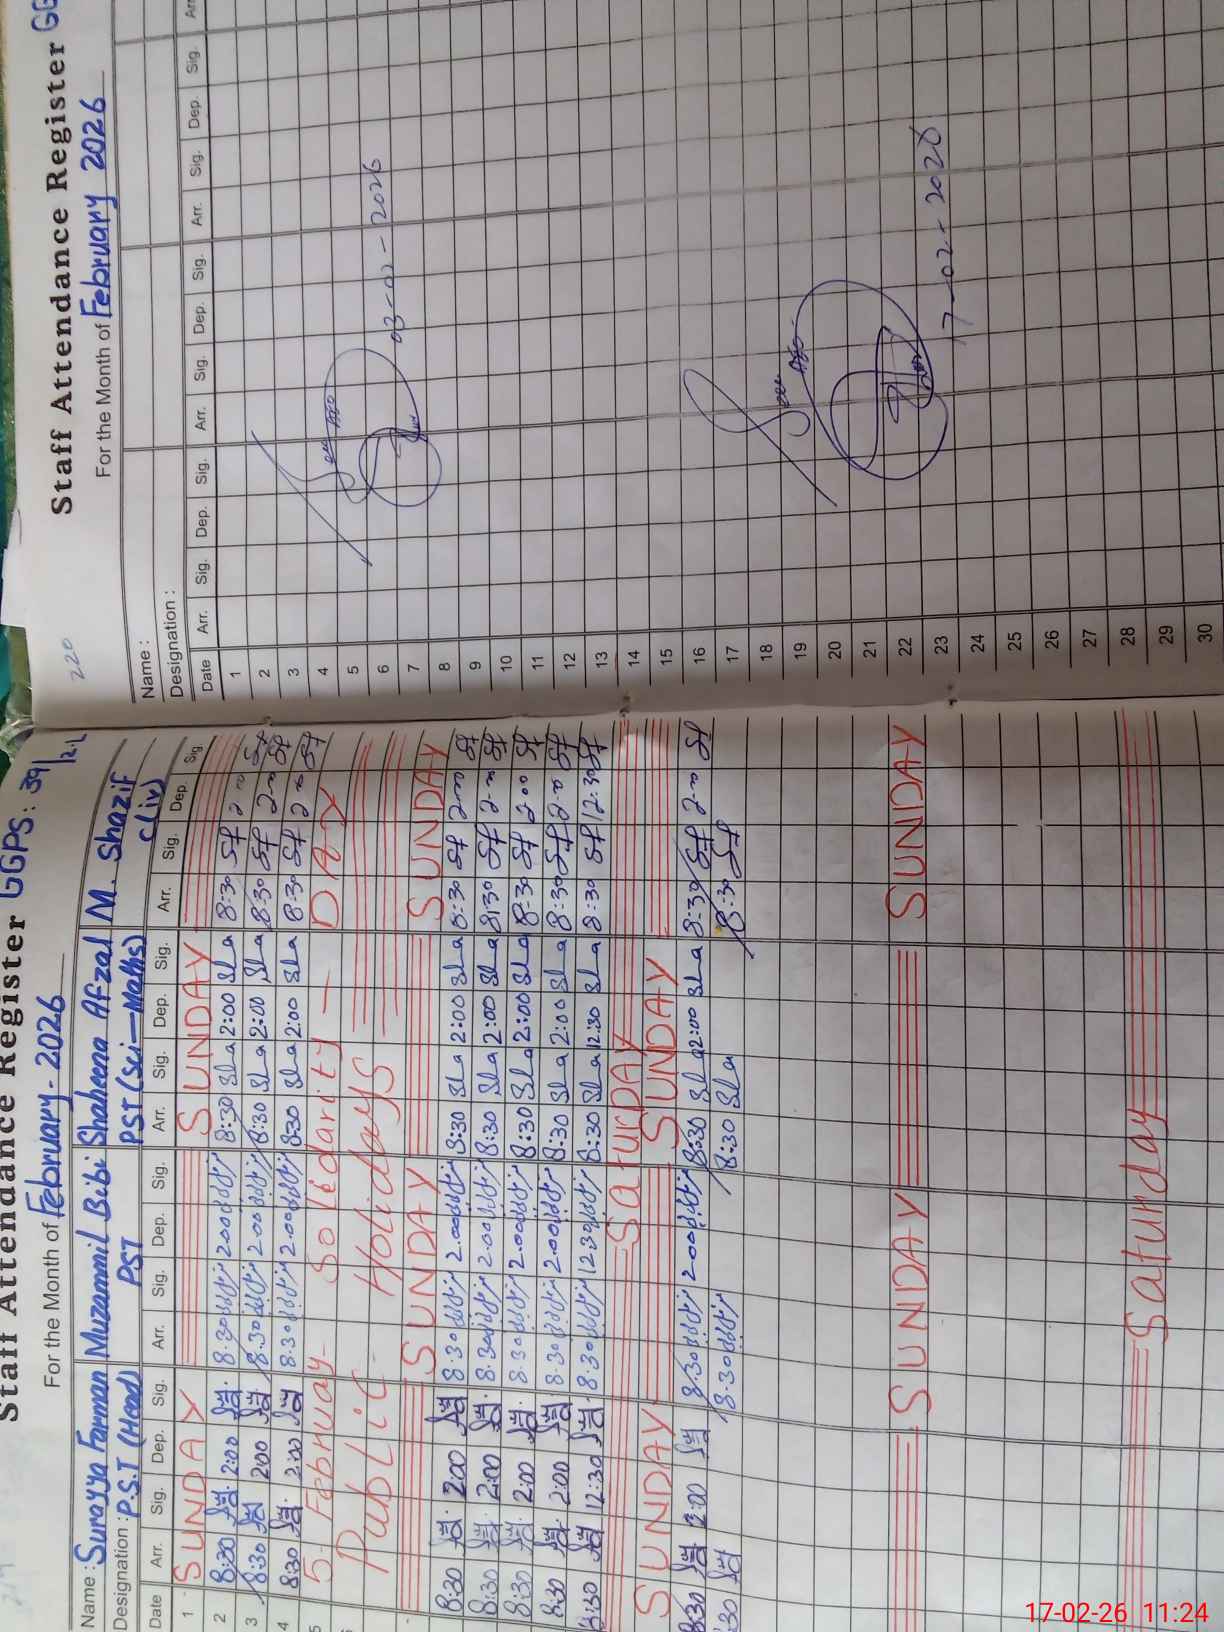 Staff Attendance Register GGPS: 39/2.L
For the Month of February-2026
Name : Surayya Farman Muzammil Bibi Shaheena Afzal M. Shazif
Designation : P.S.T (Head) PST PST (Sci-Maths) C(iv)
Date Arr. Sig. Dep. Sig. Arr. Sig. Dep. Sig. Arr. Sig. Dep. Sig. Arr. Sig. Dep Sig.
1 SUNDAY SUNDAY
2 8:30 2:00 8.30 2.00 8:30 Sla 2:00 Sla 8:30 Sf
3 8:30 2:00 8.30 2.00 8:30 Sla 2:00 Sla 8:30 Sf Sf
4 8:30 2:00 8.30 2.00 8:30 Sla 2:00 Sla 8:30 Sf Sf
5 5- February- Solidarity — DAY
Public Holidays
SUNDAY SUNDAY
8:30 2:00 8.30 2.00 8:30 Sla 2:00 Sla 8:30 Sf Sf
8:30 2:00 8.30 2.00 8:30 Sla 2:00 Sla 8:30 Sf Sf
8:30 2:00 8.30 2.00 8:30 Sla 2:00 Sla 8:30 Sf 2:00 Sf
8:30 2:00 8.30 2.00 8:30 Sla 2:00 Sla 8:30 Sf Sf
8:30 12:30 8.30 12.30 8:30 Sla 12:30 Sla 8:30 Sf 12:30 Sf
Saturday
SUNDAY SUNDAY
8:30 2:00 8.30 2.00 8:30 Sla 2:00 Sla 8:30 Sf Sf
:30 8.30 8:30 Sla 8:30 Sf
SUNDAY SUNDAY
Saturday
220
Staff Attendance Register GG
For the Month of February 2026
Name :
Designation :
Date Arr. Sig. Dep. Sig. Arr. Sig. Dep. Sig. Arr. Sig. Dep. Sig. Arr
1
2
3
4
5
6
03-02-2026
7
8
9
10
11
12
13
14
15
16
17
18
19
20
21
22
23
17-02-2026
24
25
26
27
28
29
30
17-02-26 11:24